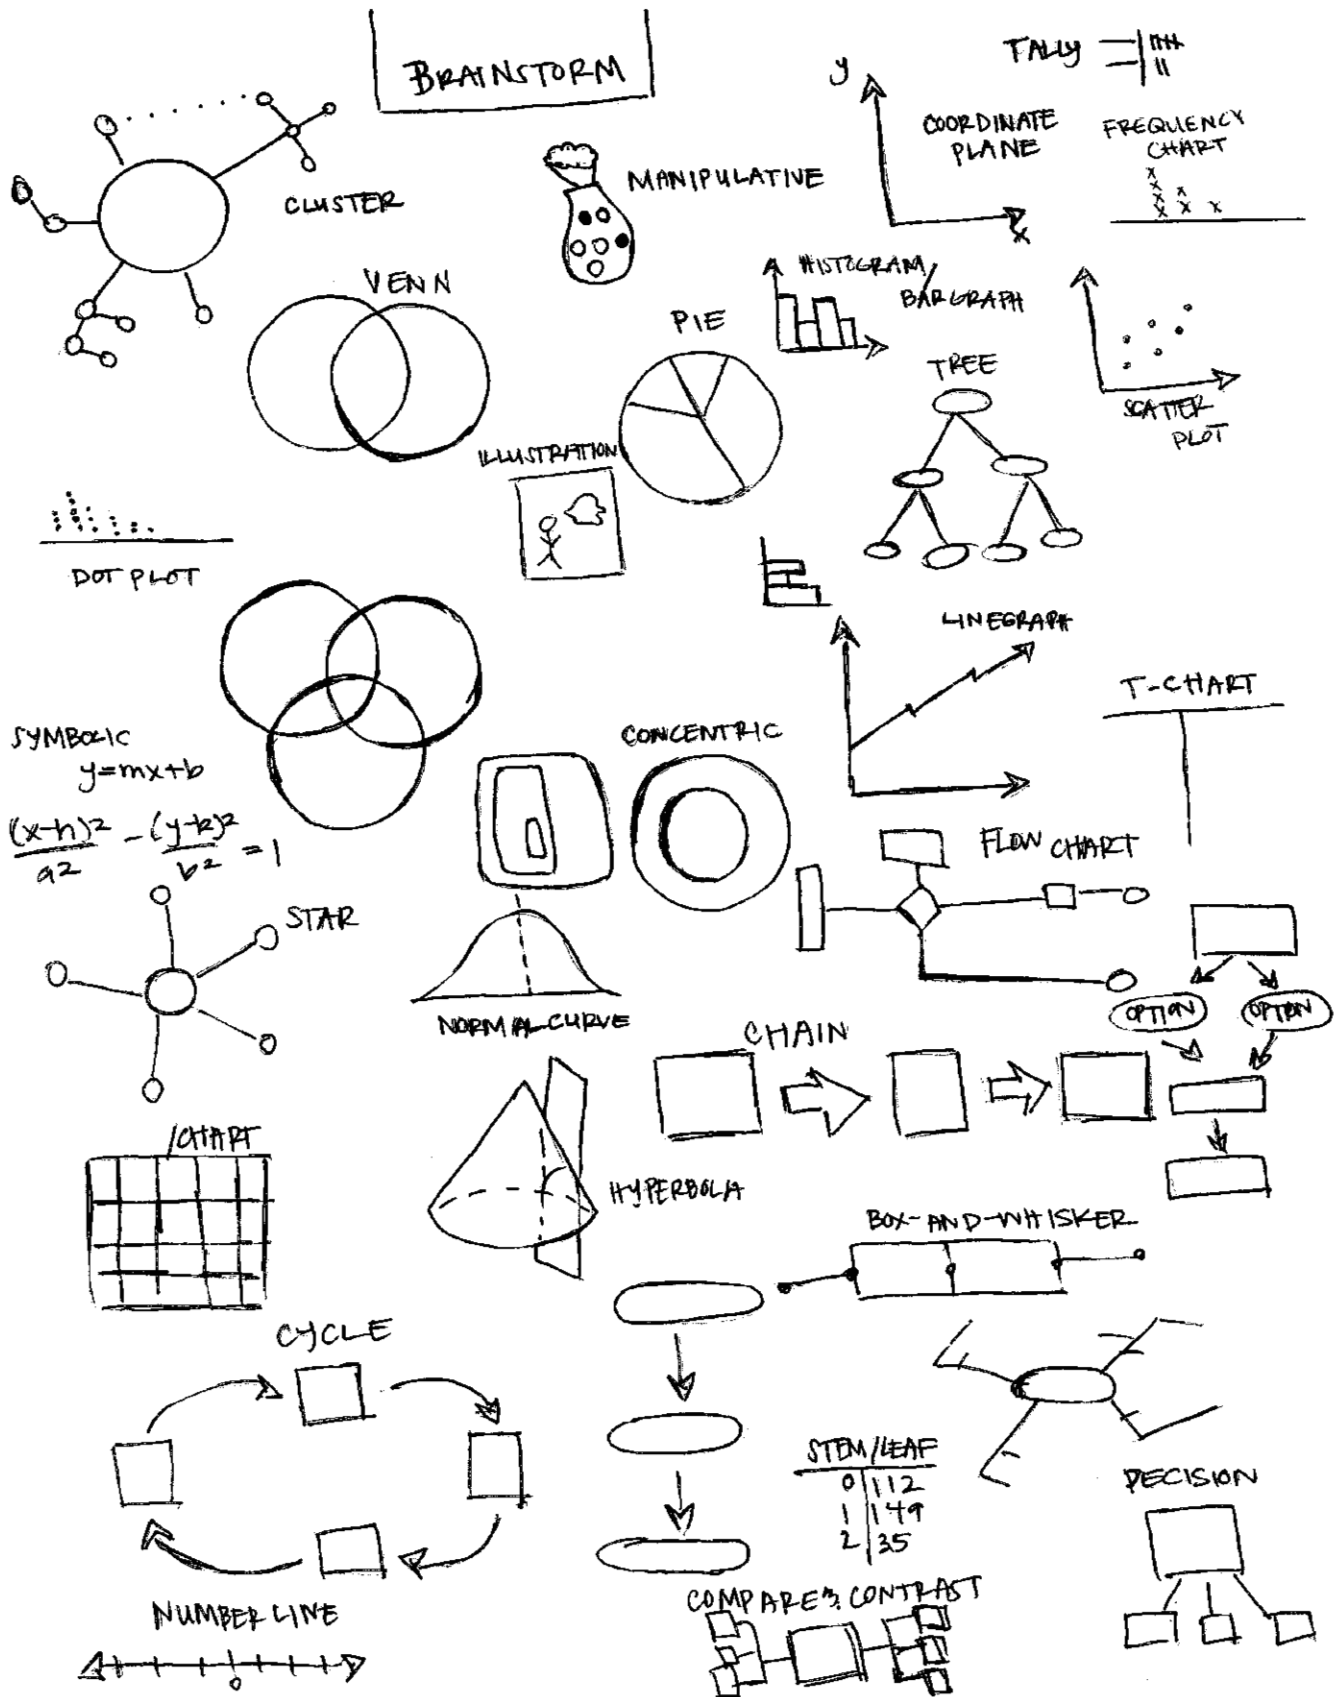 BRAINSTORM
TALLY
y
COORDINATE
PLANE
x
FREQUENCY
CHART
CLUSTER
MANIPULATIVE
VENN
HISTOGRAM/
BARGRAPH
PIE
TREE
SCATTER
PLOT
ILLUSTRATION
DOT PLOT
LINEGRAPH
T-CHART
SYMBOLIC
y=mx+b
(x-h)2 - (y-k)2 = 1
a2 b2
CONCENTRIC
FLOW CHART
STAR
NORMAL CURVE
OPTION OPTION
CHAIN
/CHART
HYPERBOLA
BOX-AND-WHISKER
CYCLE
STEM/LEAF
0 | 112
1 | 149
2 | 35
DECISION
COMPARE & CONTRAST
NUMBER LINE
0